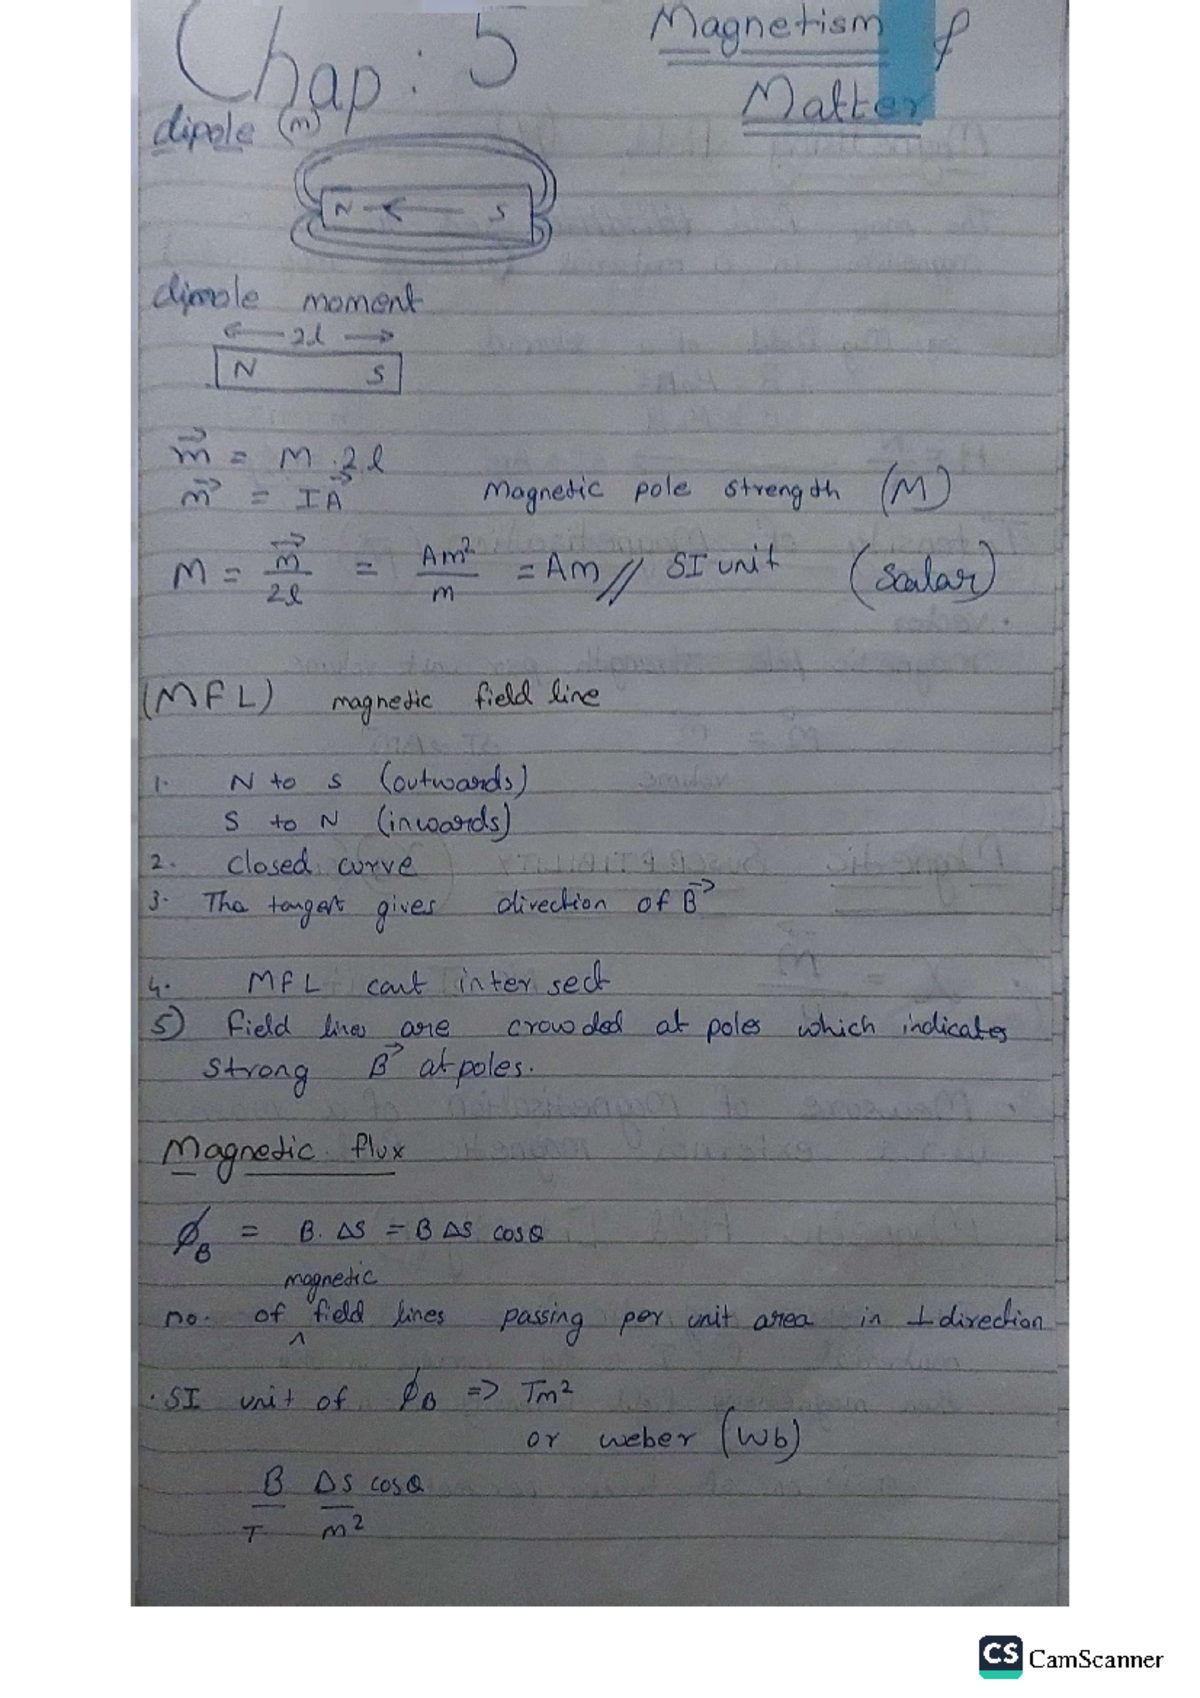 Chap: 5 Magnetism &
Matter
dipole (m)
N S
dipole moment
2l
N S
m⃗ = M . 2l
m⃗ = IA⃗ Magnetic pole strength (M)
M = m⃗/2l = Am²/m = Am // SI unit (Scalar)
(MFL) magnetic field line
1. N to S (outwards)
S to N (inwards)
2. closed curve
3. The tangent gives direction of B⃗
4. MFL cant intersect
5) field lines are crowded at poles which indicates
strong B⃗ at poles.
Magnetic flux
ϕB = B. ΔS = B ΔS cosθ
magnetic
no. of ^ field lines passing per unit area in ⊥ direction
. SI unit of ϕB => Tm²
or weber (Wb)
B ΔS cosθ
T m²
CS CamScanner